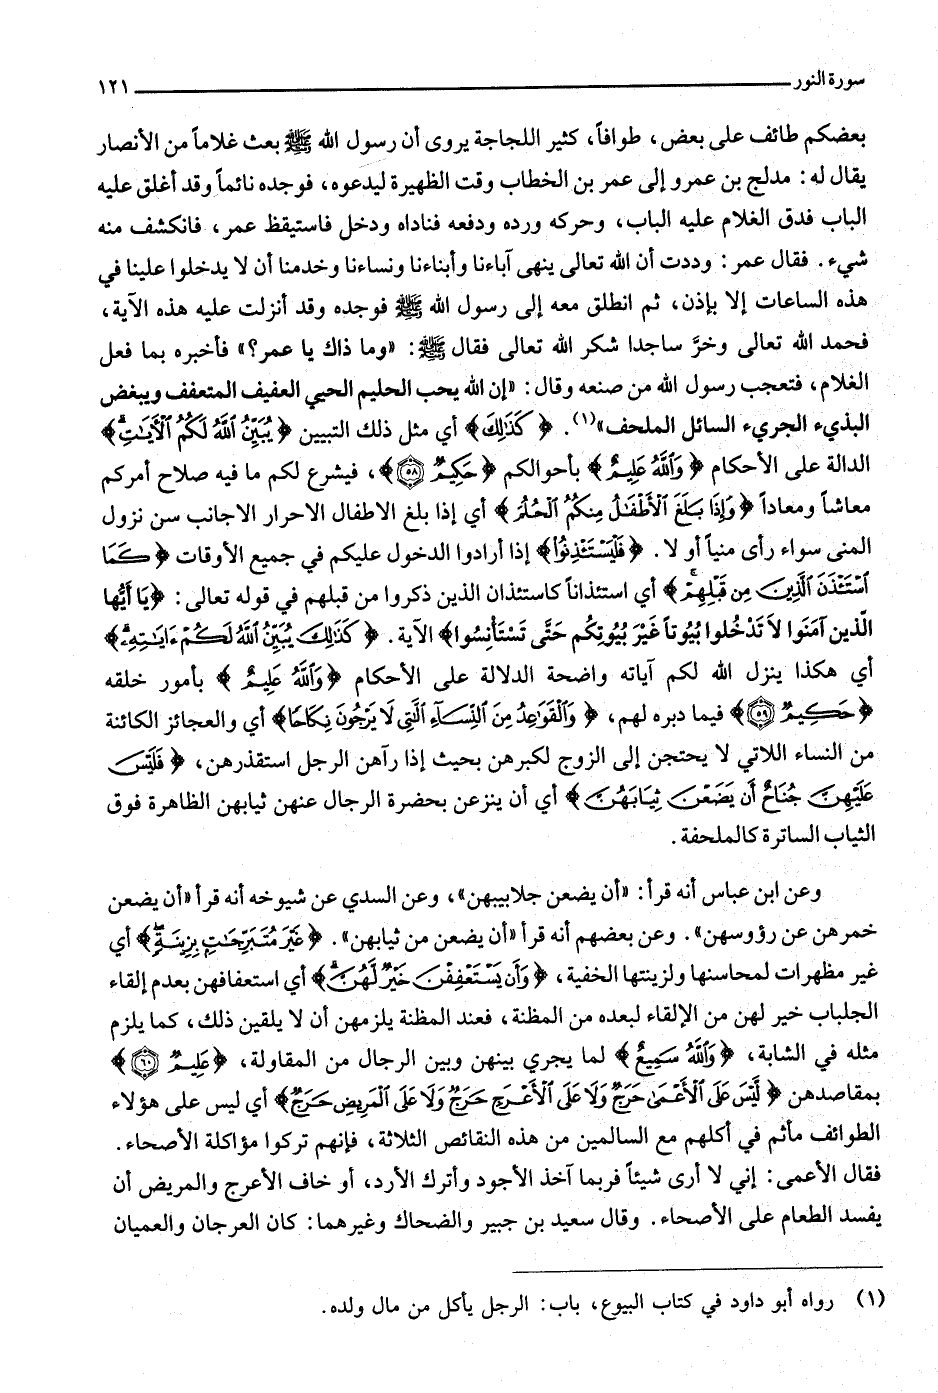 سورة النور ١٢١
بعضكم طائف على بعض، طوافاً، كثير اللجاجة يروى أن رسول الله ﷺ بعث غلاماً من الأنصار
يقال له: مدلج بن عمرو إلى عمر بن الخطاب وقت الظهيرة ليدعوه، فوجده نائماً وقد أغلق عليه
الباب فدق الغلام عليه الباب، وحركه ورده ودفعه فناداه ودخل فاستيقظ عمر، فانكشف منه
شيء. فقال عمر: وددت أن الله تعالى ينهى آباءنا وأبناءنا ونساءنا وخدمنا أن لا يدخلوا علينا في
هذه الساعات إلا بإذن، ثم انطلق معه إلى رسول الله ﷺ فوجده وقد أنزلت عليه هذه الآية،
فحمد الله تعالى وخرَّ ساجدا شكر الله تعالى فقال ﷺ: «وما ذاك يا عمر؟» فأخبره بما فعل
الغلام، فتعجب رسول الله من صنعه وقال: «إن الله يحب الحليم الحيي العفيف المتعفف ويبغض
البذيء الجريء السائل الملحف»(١). ﴿كَذَٰلِكَ﴾ أي مثل ذلك التبيين ﴿يُبَيِّنُ ٱللَّهُ لَكُمُ ٱلْآيَٰتِۗ﴾
الدالة على الأحكام ﴿وَٱللَّهُ عَلِيمٌ﴾ بأحوالكم ﴿حَكِيمٌ ٥٨﴾، فيشرع لكم ما فيه صلاح أمركم
معاشاً ومعاداً ﴿وَإِذَا بَلَغَ ٱلْأَطْفَٰلُ مِنكُمُ ٱلْحُلُمَ﴾ أي إذا بلغ الاطفال الاحرار الاجانب سن نزول
المنى سواء رأى منياً أو لا. ﴿فَلْيَسْتَـْٔذِنُوا۟﴾ إذا أرادوا الدخول عليكم في جميع الأوقات ﴿كَمَا
ٱسْتَـْٔذَنَ ٱلَّذِينَ مِن قَبْلِهِمْۚ﴾ أي استئذاناً كاستئذان الذين ذكروا من قبلهم في قوله تعالى: ﴿يَا أَيُّهَا
الَّذين آمَنُوا لاَ تَدْخُلوا بُيُوتاً غَيْرَ بُيُوتِكُم حَتَّى تَسْتَأْنِسُوا﴾ الآية. ﴿كَذَٰلِكَ يُبَيِّنُ ٱللَّهُ لَكُمْ ءَايَٰتِهِۦۗ﴾
أي هكذا ينزل الله لكم آياته واضحة الدلالة على الأحكام ﴿وَٱللَّهُ عَلِيمٌ﴾ بأمور خلقه
﴿حَكِيمٌ ٥٩﴾ فيما دبره لهم، ﴿وَٱلْقَوَٰعِدُ مِنَ ٱلنِّسَآءِ ٱلَّٰتِي لَا يَرْجُونَ نِكَاحًا﴾ أي والعجائز الكائنة
من النساء اللاتي لا يحتجن إلى الزوج لكبرهن بحيث إذا رآهن الرجل استقذرهن، ﴿فَلَيْسَ
عَلَيْهِنَّ جُنَاحٌ أَن يَضَعْنَ ثِيَابَهُنَّ﴾ أي أن ينزعن بحضرة الرجال عنهن ثيابهن الظاهرة فوق
الثياب الساترة كالملحفة.
وعن ابن عباس أنه قرأ: «أن يضعن جلابيبهن»، وعن السدي عن شيوخه أنه قرأ «أن يضعن
خمرهن عن رؤوسهن». وعن بعضهم أنه قرأ «أن يضعن من ثيابهن». ﴿غَيْرَ مُتَبَرِّجَٰتٍۭ بِزِينَةٍۖ﴾ أي
غير مظهرات لمحاسنها ولزينتها الخفية، ﴿وَأَن يَسْتَعْفِفْنَ خَيْرٌ لَّهُنَّۗ﴾ أي استعفافهن بعدم إلقاء
الجلباب خير لهن من الإلقاء لبعده من المظنة، فعند المظنة يلزمهن أن لا يلقين ذلك، كما يلزم
مثله في الشابة، ﴿وَٱللَّهُ سَمِيعٌ﴾ لما يجري بينهن وبين الرجال من المقاولة، ﴿عَلِيمٌ ٦٠﴾
بمقاصدهن ﴿لَّيْسَ عَلَى ٱلْأَعْمَىٰ حَرَجٌ وَلَا عَلَى ٱلْأَعْرَجِ حَرَجٌ وَلَا عَلَى ٱلْمَرِيضِ حَرَجٌ﴾ أي ليس على هؤلاء
الطوائف مأثم في أكلهم مع السالمين من هذه النقائص الثلاثة، فإنهم تركوا مؤاكلة الأصحاء.
فقال الأعمى: إني لا أرى شيئاً فربما آخذ الأجود وأترك الأرد، أو خاف الأعرج والمريض أن
يفسد الطعام على الأصحاء. وقال سعيد بن جبير والضحاك وغيرهما: كان العرجان والعميان
(١) رواه أبو داود في كتاب البيوع، باب: الرجل يأكل من مال ولده.